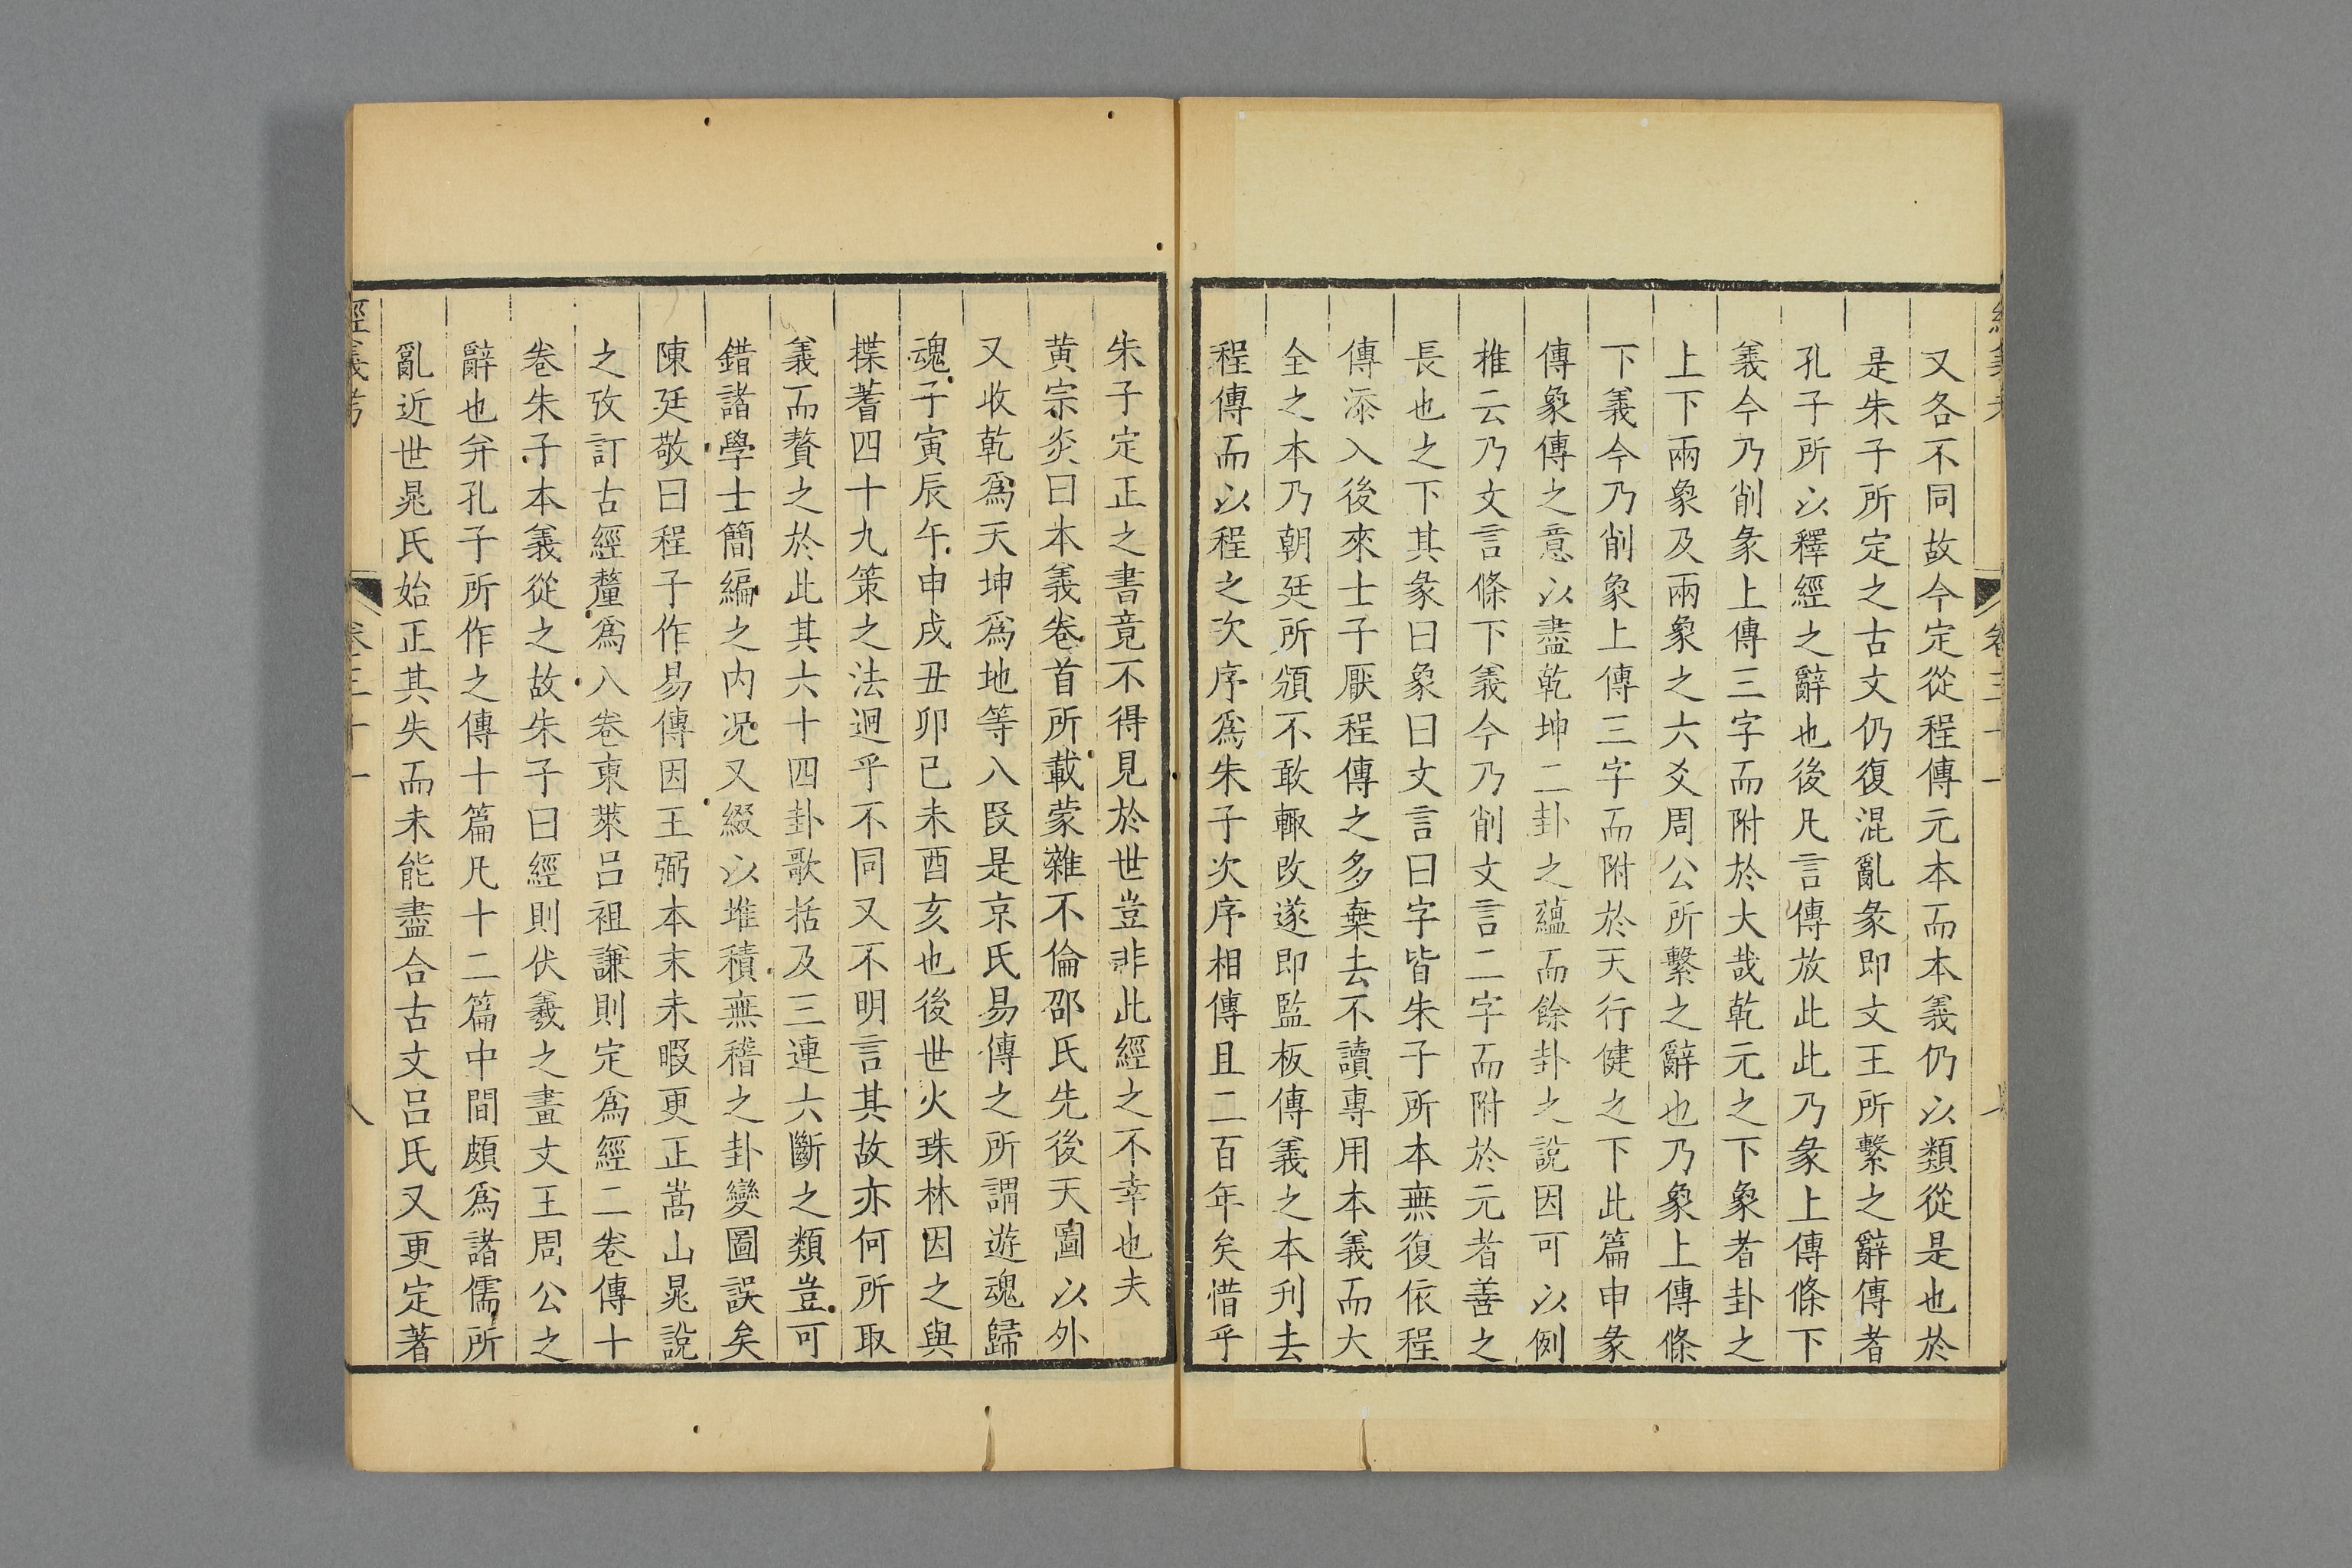 又各不同故今定從程傳元本而本義仍以類從是也於
是朱子所定之古文仍復混亂彖即文王所繫之辭傳者
孔子所以釋經之辭也後凡言傳放此此乃彖上傳條下
義今乃削彖上傳三字而附於大哉乾元之下象者卦之
上下兩象及兩象之六爻周公所繫之辭也乃象上傳條
下義今乃削象上傳三字而附於天行健之下此篇申彖
傳象傳之意以盡乾坤二卦之蘊而餘卦之說因可以例
推云乃文言條下義今乃削文言二字而附於元者善之
長也之下其彖曰象曰文言曰字皆朱子所本無復依程
傳添入後來士子厭程傳之多棄去不讀專用本義而大
全之本乃朝廷所頒不敢輒改遂即監板傳義之本刋去
程傳而以程之次序爲朱子次序相傳且二百年矣惜乎
朱子定正之書竟不得見於世豈非此經之不幸也夫
黃宗炎曰本義卷首所載蒙雜不倫邵氏先後天圖以外
又收乾爲天坤爲地等八叚是京氏易傳之所謂遊魂歸
魂子寅辰午申戌丑卯巳未酉亥也後世火珠林因之與
揲蓍四十九策之法迥乎不同又不明言其故亦何所取
義而贅之於此其六十四卦歌括及三連六斷之類豈可
錯諸學士簡編之内况又綴以堆積無稽之卦變圖誤矣
陳廷敬曰程子作易傳因王弼本末未暇更正嵩山晁說
之攷訂古經釐爲八卷東萊呂祖謙則定爲經二卷傳十
卷朱子本義從之故朱子曰經則伏羲之畫文王周公之
辭也并孔子所作之傳十篇凡十二篇中間頗爲諸儒所
亂近世晁氏始正其失而未能盡合古文呂氏又更定著
經義考 卷三十一 八